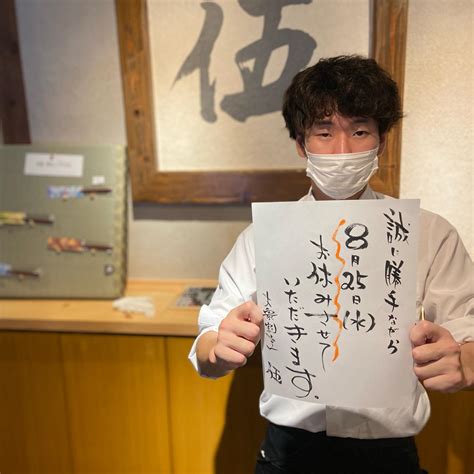 伍
誠に勝手ながら
8月25日(水)
お休みさせて
いただきます。
伍